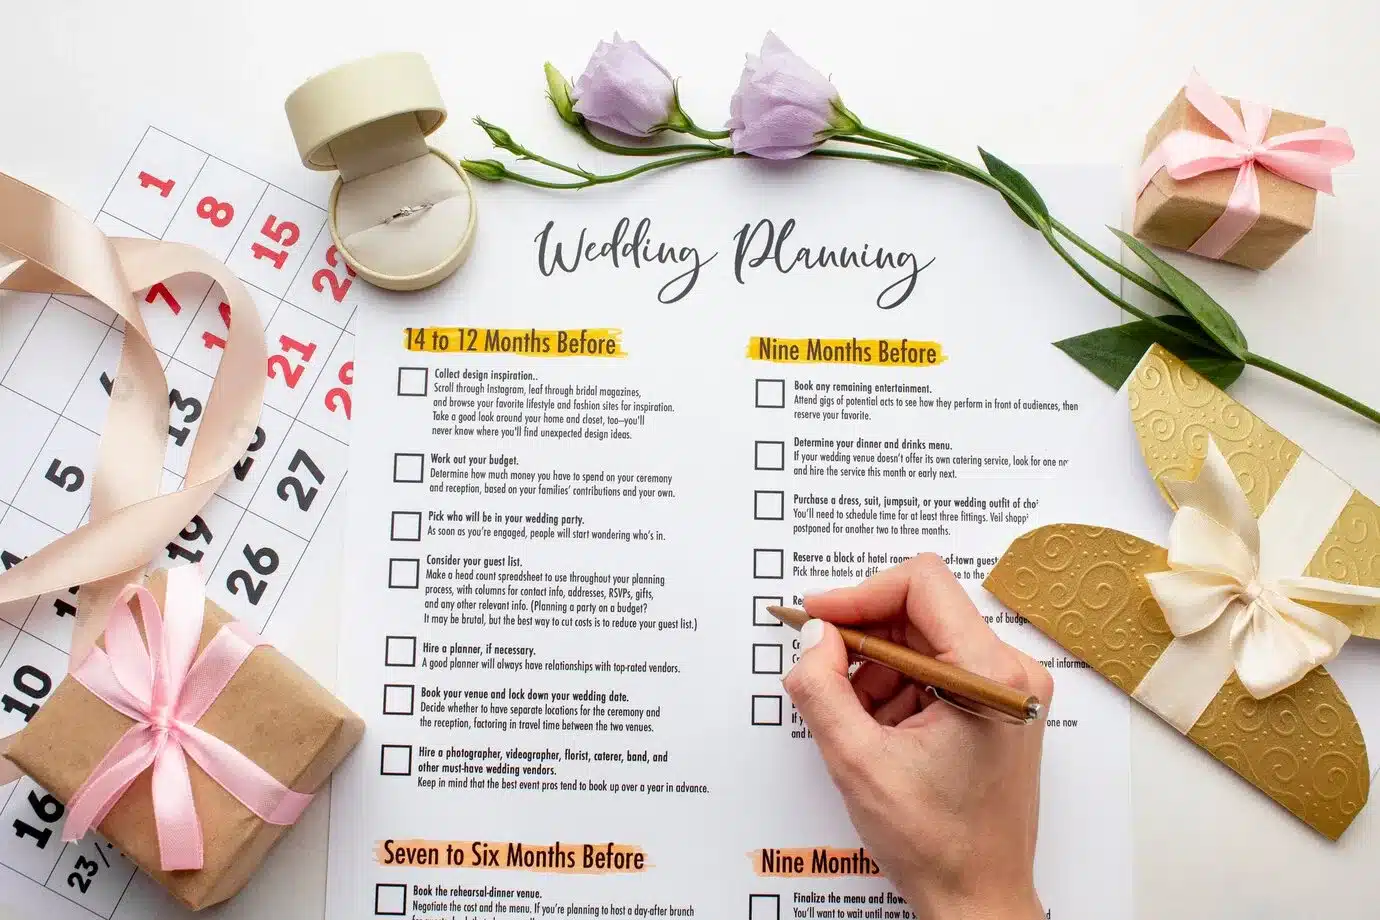 Wedding Planning
14 to 12 Months Before
Collect design inspiration..
Scroll through Instagram, leaf through bridal magazines,
and browse your favorite lifestyle and fashion sites for inspiration.
Take a good look around your home and closet, too—you'll
never know where you'll find unexpected design ideas.
Work out your budget.
Determine how much money you have to spend on your ceremony
and reception, based on your families' contributions and your own.
Pick who will be in your wedding party.
As soon as you're engaged, people will start wondering who's in.
Consider your guest list.
Make a head count spreadsheet to use throughout your planning
process, with columns for contact info, addresses, RSVPs, gifts,
and any other relevant info. (Planning a party on a budget?
It may be brutal, but the best way to cut costs is to reduce your guest list.)
Hire a planner, if necessary.
A good planner will always have relationships with top-rated vendors.
Book your venue and lock down your wedding date.
Decide whether to have separate locations for the ceremony and
the reception, factoring in travel time between the two venues.
Hire a photographer, videographer, florist, caterer, band, and
other must-have wedding vendors.
Keep in mind that the best event pros tend to book up over a year in advance.
Seven to Six Months Before
Book the rehearsal-dinner venue.
Negotiate the cost and the menu. If you're planning to host a day-after brunch
Nine Months Before
Book any remaining entertainment.
Attend gigs of potential acts to see how they perform in front of audiences, then
reserve your favorite.
Determine your dinner and drinks menu.
If your wedding venue doesn't offer its own catering service, look for one
and hire the service this month or early next.
Purchase a dress, suit, jumpsuit, or your wedding outfit of
You'll need to schedule time for at least three fittings. Veil
postponed for another two to three months.
Reserve a block of hotel
Pick three hotels at
to the
Nine Months
Finalize the menu and
You'll want to wait until now to
1
8
15
22
7
14
21
28
6
13
20
27
5
19
26
10
16
23/